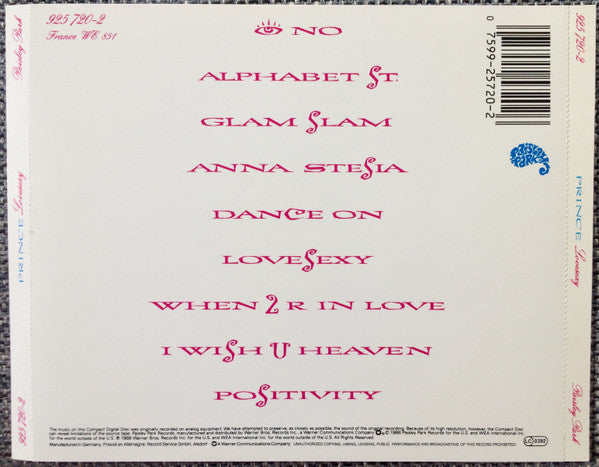 925 720-2
France WE 851
NO
ALPHABET ST.
GLAM SLAM
ANNA STESIA
DANCE ON
LOVESEXY
WHEN 2 R IN LOVE
I WISH U HEAVEN
POSITIVITY
0 7599-25720-2
PAISLEY PARK
Paisley Park
PRINCE Lovesexy
925 720-2
925 720-2
PRINCE Lovesexy
Paisley Park
The music on this Compact Digital Disc was originally recorded on analog equipment. We have attempted to preserve, as closely as possible, the sound of the original recording. Because of its high resolution, however, the Compact Disc
can reveal limitations of the source tape. Paisley Park Records, manufactured and distributed by Warner Bros. Records Inc., a Warner Communications Company © 1988 Paisley Park Records for the U.S. and WEA International Inc.
for the world outside of the U.S. ℗ 1988 Warner Bros. Records Inc. for the U.S. and WEA International Inc. for the world outside of the U.S. All Rights Reserved.
Manufactured in Germany. Printed in Allemagne. Record Service GmbH, Alsdorf. A Warner Communications Company UNAUTHORIZED COPYING, HIRING, LENDING, PUBLIC PERFORMANCE AND BROADCASTING OF THIS RECORD PROHIBITED!
LC 0392